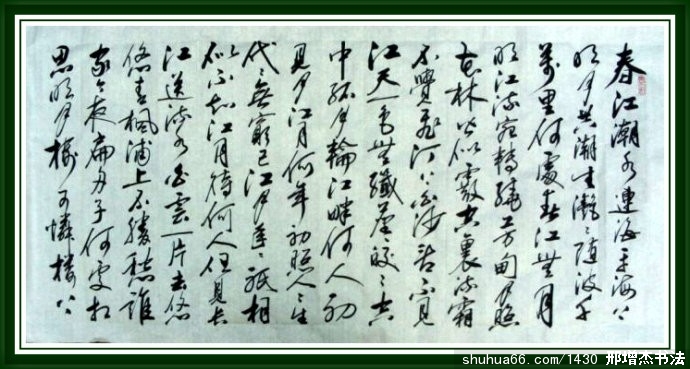 春江潮水連海平海上
明月共潮生灧〻隨波千
萬里何處春江無月
明江流宛轉繞芳甸月照
花林皆似霰空裏流霜
不覺飛汀上白沙看不見
江天一色無纖塵皎〻空
中孤月輪江畔何人初
見月江月何年初照人〻生
代〻無窮已江月年〻祇相
似不知江月待何人但見長
江送流水白雲一片去悠
悠青楓浦上不勝愁誰
家今夜扁舟子何處相
思明月樓可憐樓上
shuhua66.com/1430 邢增杰书法